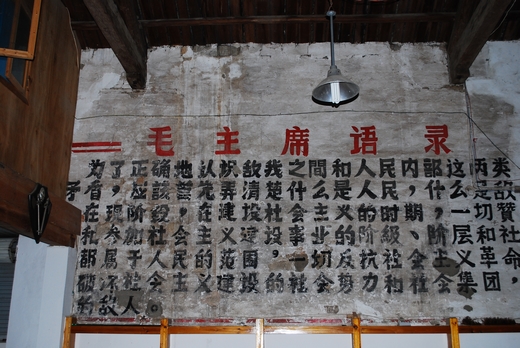 毛主席语录
为了正确地认识敌我之间和人民内部这两类
盾，应该首先弄清楚什么是人民，什么是敌
在现阶段，在建设社会主义的时期，一切赞
和参加社会主义建设事业的阶级、阶层和社
都属于人民的范围；一切反抗社会主义革命，
破坏社会主义建设的社会势力和社会集团
的敌人。